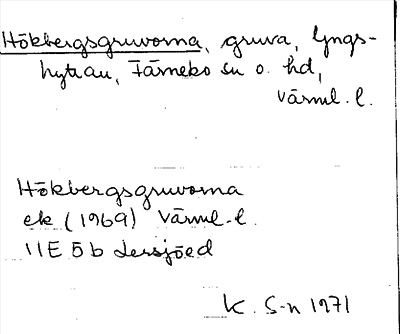 Hökbergsgruvorna, gruva, Lyngs-
hyttan, Färnebo sn o. hd,
Värml. l.
Hökbergsgruvorna
ek (1969) Värml. l.
11E 5b Lersjöed
K. S-n 1971